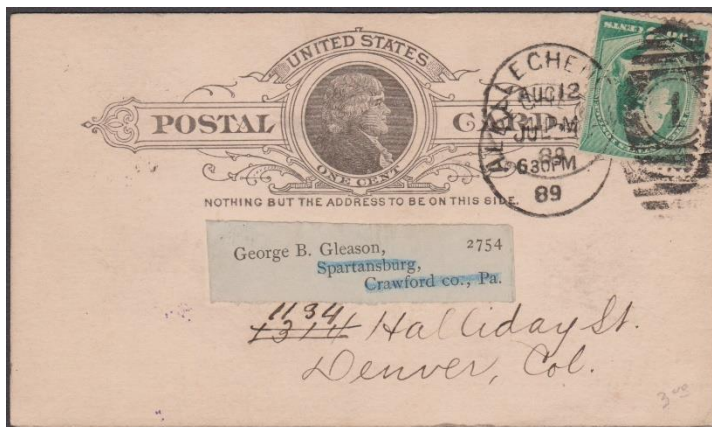 UNITED STATES
POSTAL CARD
ONE CENT
NOTHING BUT THE ADDRESS TO BE ON THIS SIDE.
AUG 12
630PM
89
George B. Gleason, 2754
Spartansburg,
Crawford co., Pa.
1134
1314 Halliday St.
Denver, Col.
3 00